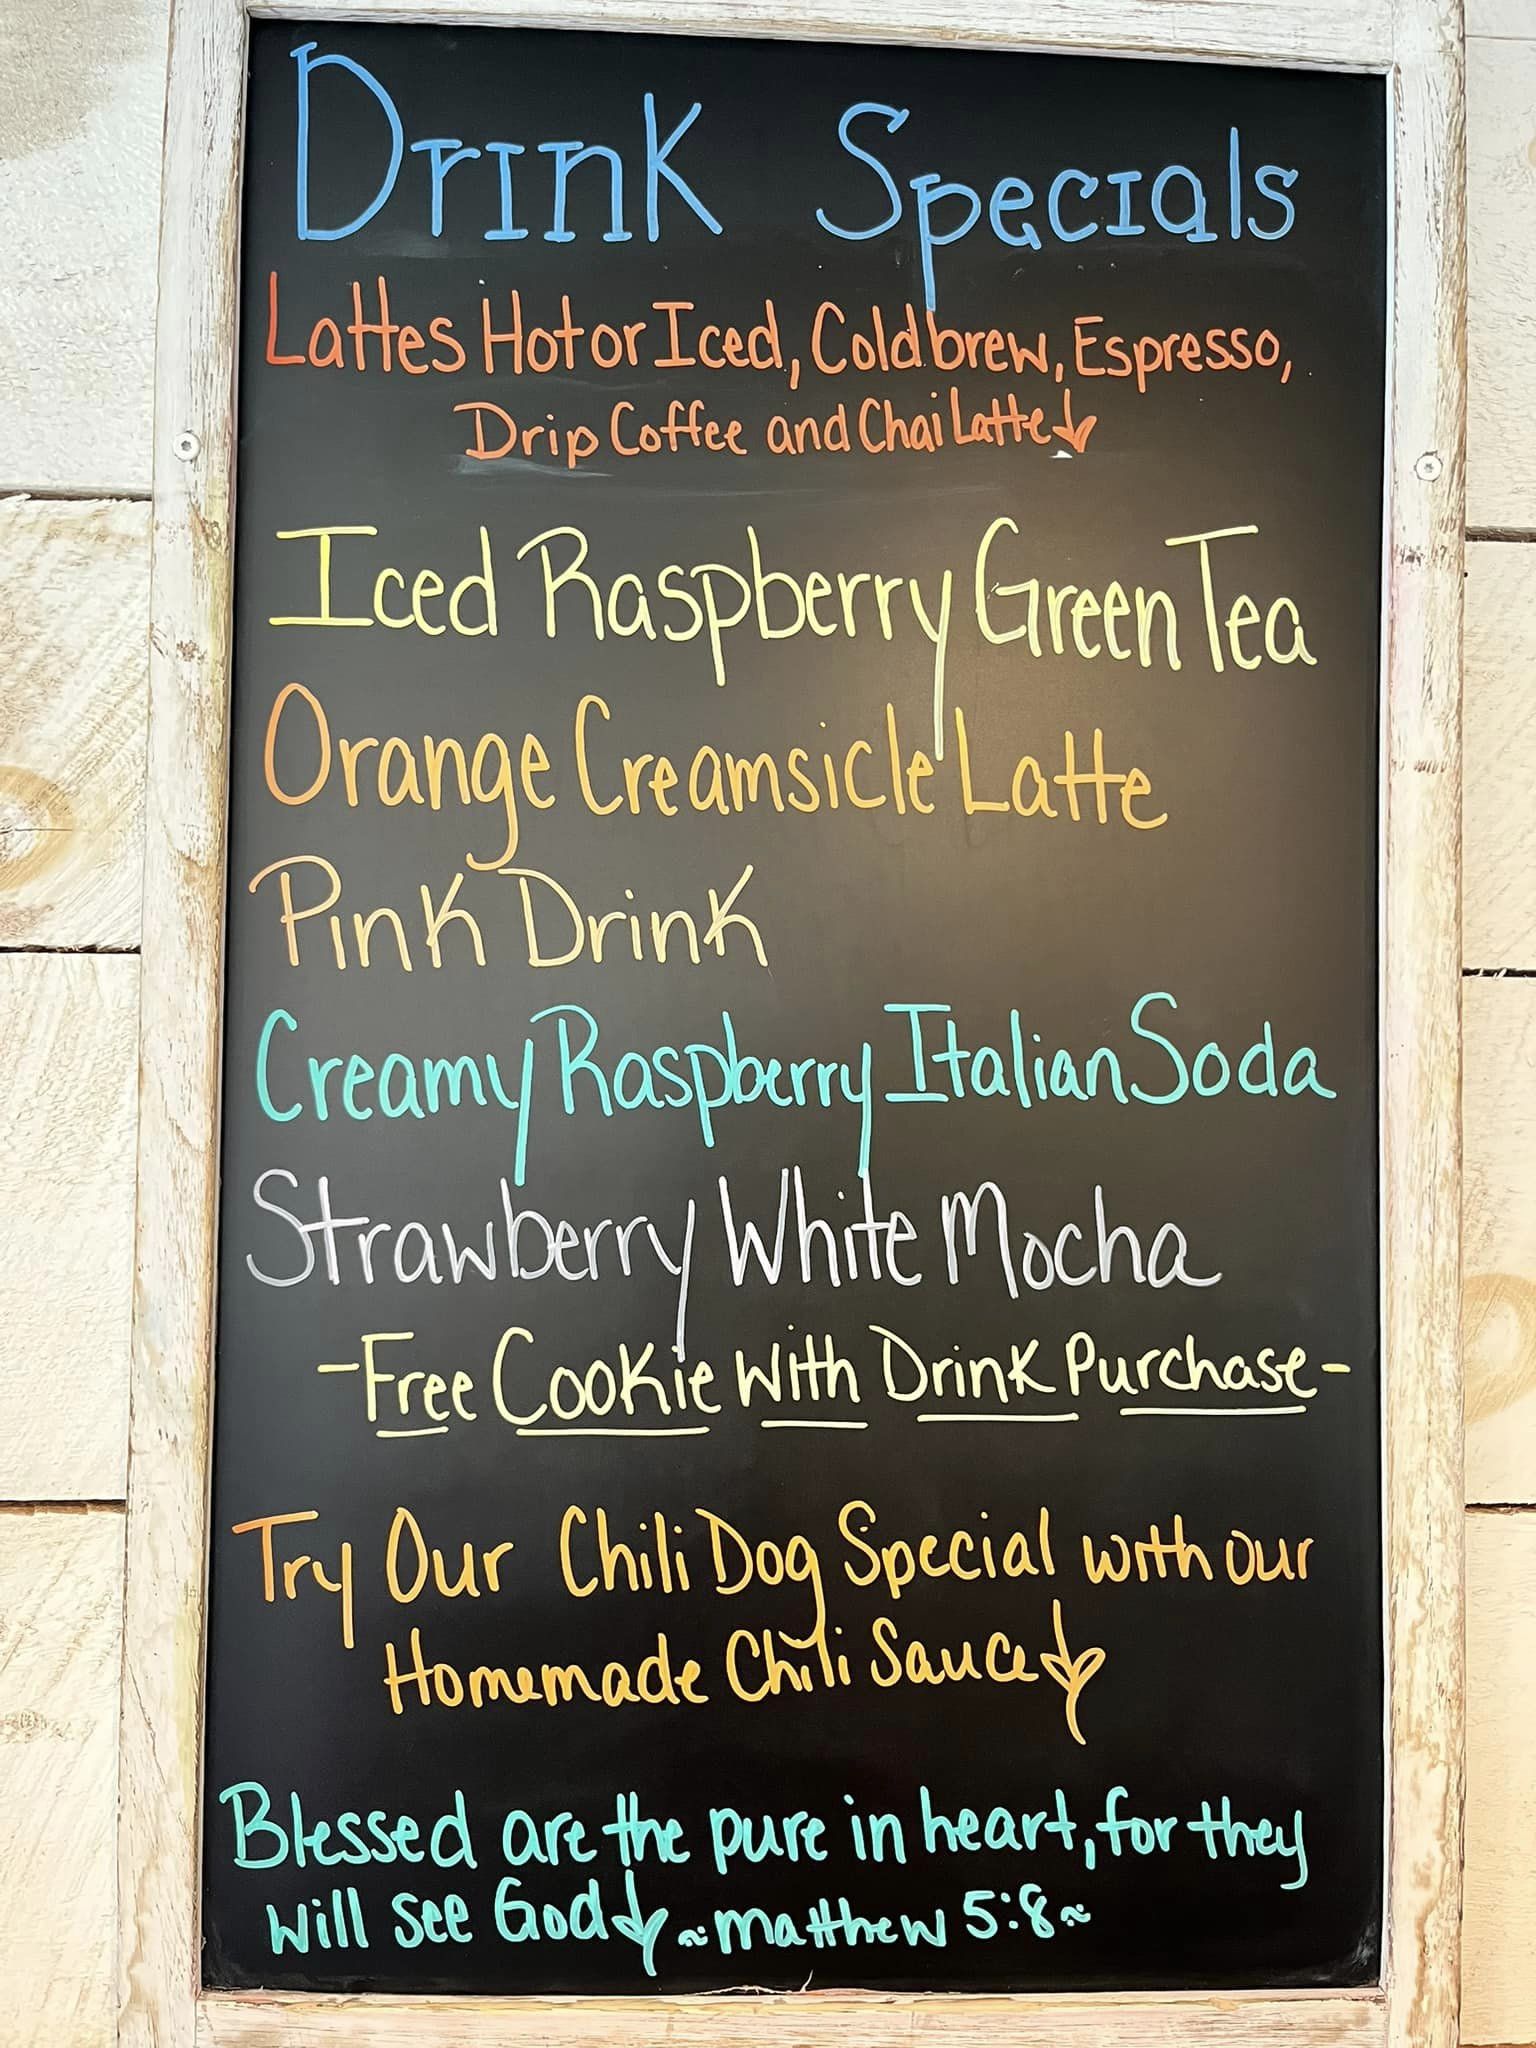 Drink Specials
Lattes Hot or Iced, Coldbrew, Espresso,
Drip Coffee and Chai Latte
Iced Raspberry Green Tea
Orange Creamsicle Latte
Pink Drink
Creamy Raspberry Italian Soda
Strawberry White Mocha
-Free Cookie With Drink Purchase-
Try Our Chili Dog Special with our
Homemade Chili Sauce
Blessed are the pure in heart, for they
will see God ~matthew 5:8~